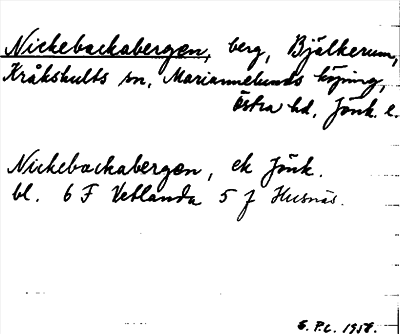 Nickebackabergen, berg, Bjälkerum,
Kråkshults sn, Mariannelunds köping,
Östra hd, Jönk. l.
Nickebackabergen, ek Jönk.
bl. 6 F Vetlanda 5 f Husnäs.
S.P.L. 1958.